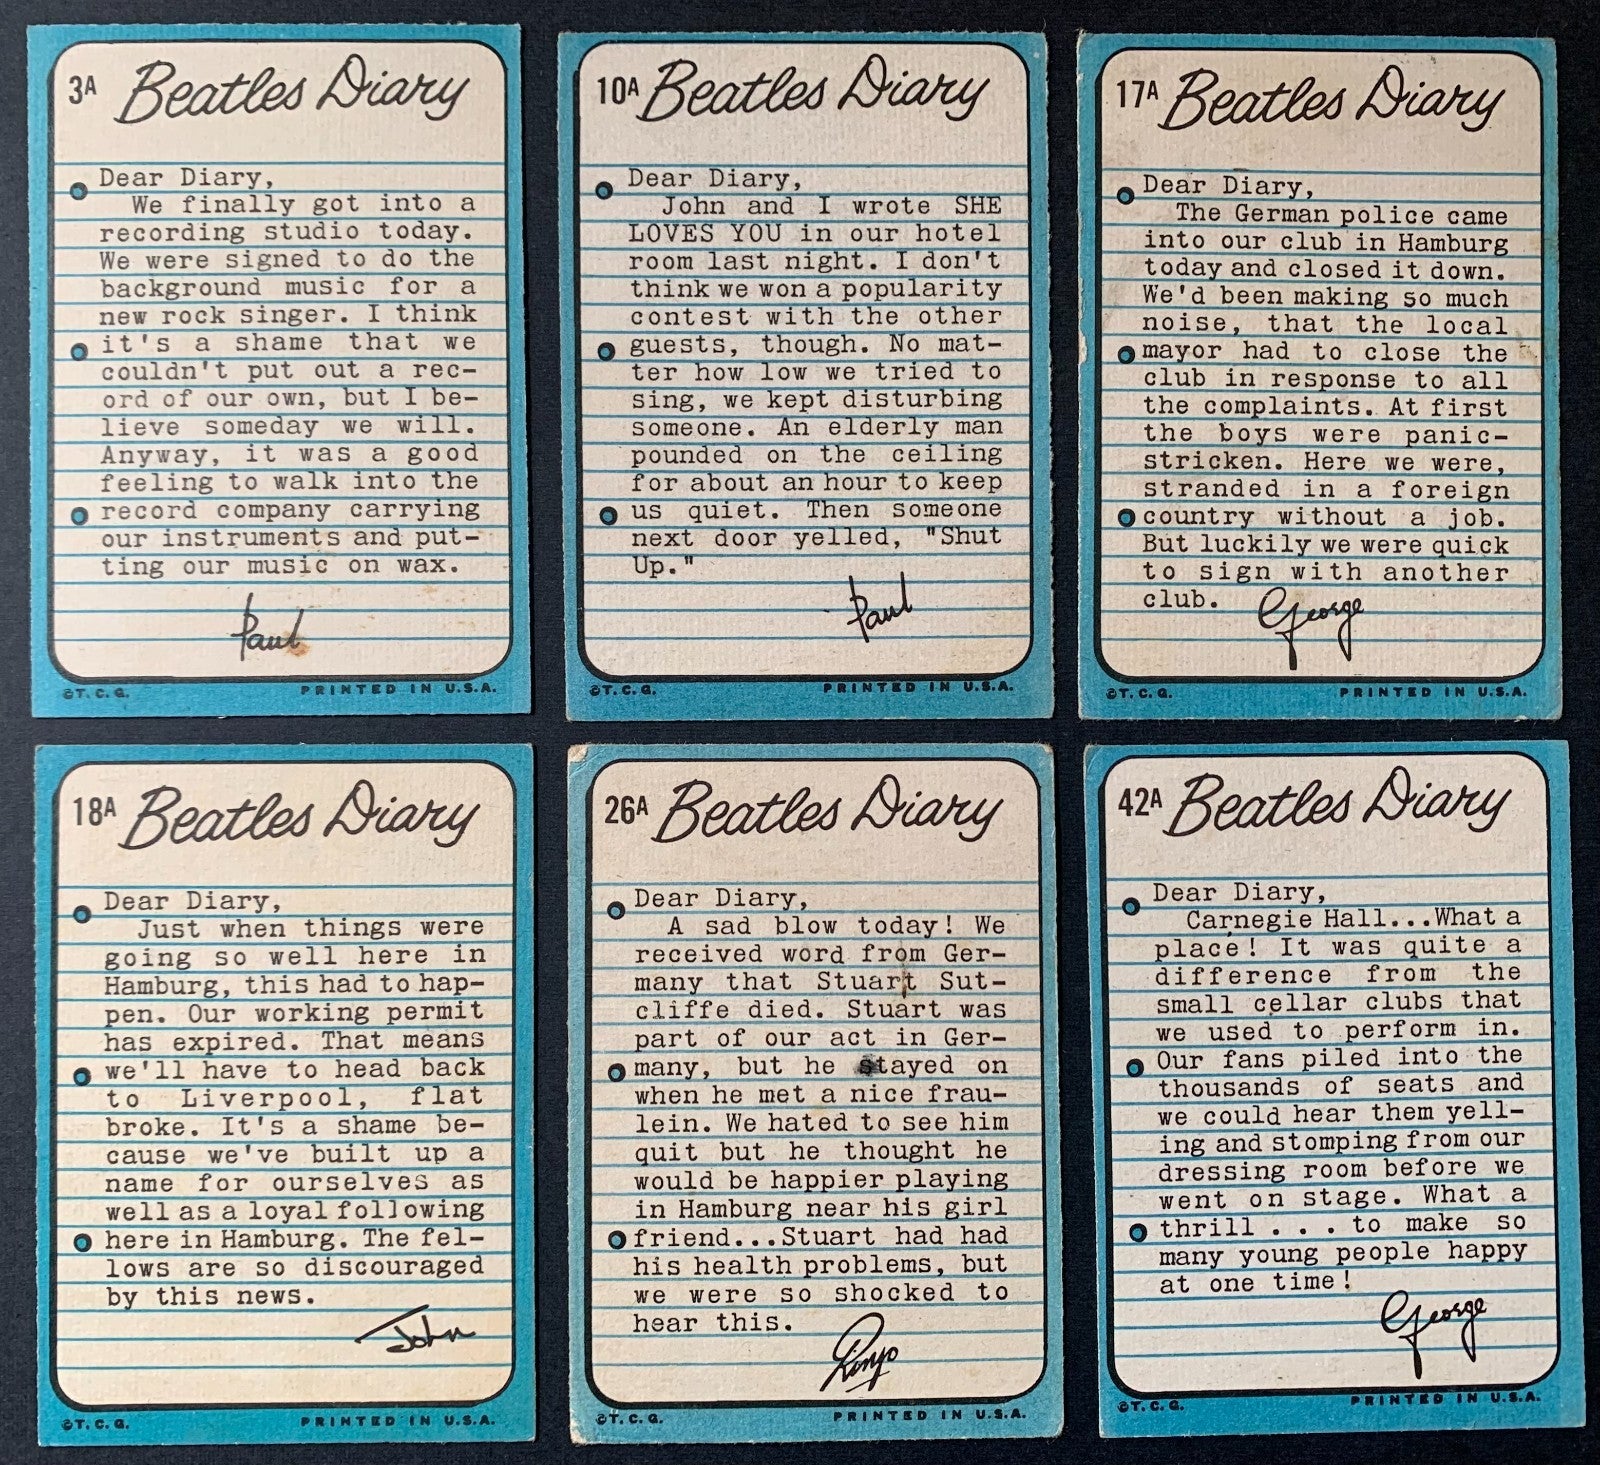 3A Beatles Diary
Dear Diary,
We finally got into a
recording studio today.
We were signed to do the
background music for a
new rock singer. I think
it's a shame that we
couldn't put out a rec-
ord of our own, but I be-
lieve someday we will.
Anyway, it was a good
feeling to walk into the
record company carrying
our instruments and put-
ting our music on wax.
Paul
©T.C.G. PRINTED IN U.S.A.
10A Beatles Diary
Dear Diary,
John and I wrote SHE
LOVES YOU in our hotel
room last night. I don't
think we won a popularity
contest with the other
guests, though. No mat-
ter how low we tried to
sing, we kept disturbing
someone. An elderly man
pounded on the ceiling
for about an hour to keep
us quiet. Then someone
next door yelled, "Shut
Up."
Paul
©T.C.G. PRINTED IN U.S.A.
17A Beatles Diary
Dear Diary,
The German police came
into our club in Hamburg
today and closed it down.
We'd been making so much
noise, that the local
mayor had to close the
club in response to all
the complaints. At first
the boys were panic-
stricken. Here we were,
stranded in a foreign
country without a job.
But luckily we were quick
to sign with another
club.
George
©T.C.G. PRINTED IN U.S.A.
18A Beatles Diary
Dear Diary,
Just when things were
going so well here in
Hamburg, this had to hap-
pen. Our working permit
has expired. That means
we'll have to head back
to Liverpool, flat
broke. It's a shame be-
cause we've built up a
name for ourselves as
well as a loyal following
here in Hamburg. The fel-
lows are so discouraged
by this news.
John
©T.C.G. PRINTED IN U.S.A.
26A Beatles Diary
Dear Diary,
A sad blow today! We
received word from Ger-
many that Stuart Sut-
cliffe died. Stuart was
part of our act in Ger-
many, but he stayed on
when he met a nice frau-
lein. We hated to see him
quit but he thought he
would be happier playing
in Hamburg near his girl
friend...Stuart had had
his health problems, but
we were so shocked to
hear this.
Ringo
©T.C.G. PRINTED IN U.S.A.
42A Beatles Diary
Dear Diary,
Carnegie Hall...What a
place! It was quite a
difference from the
small cellar clubs that
we used to perform in.
Our fans piled into the
thousands of seats and
we could hear them yell-
ing and stomping from our
dressing room before we
went on stage. What a
thrill . . . to make so
many young people happy
at one time!
George
©T.C.G. PRINTED IN U.S.A.